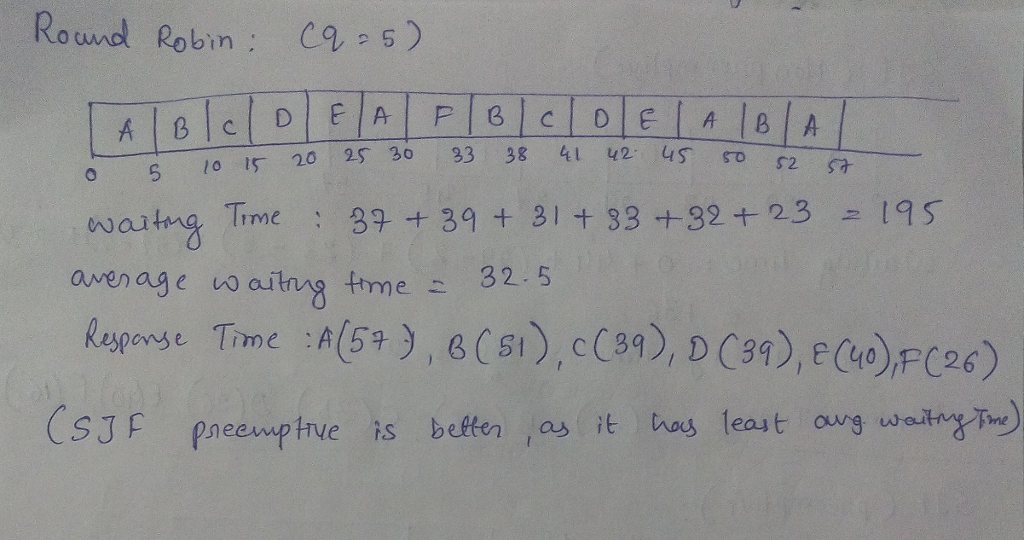 Round Robin : (q = 5)
A B C D E A F B C D E A B A
0 5 10 15 20 25 30 33 38 41 42 45 50 52 57
waiting Time : 37 + 39 + 31 + 33 + 32 + 23 = 195
average waiting time = 32.5
Response Time : A(57), B(51), C(39), D(39), E(40), F(26)
(SJF preemptive is better, as it has least avg. waiting Time)